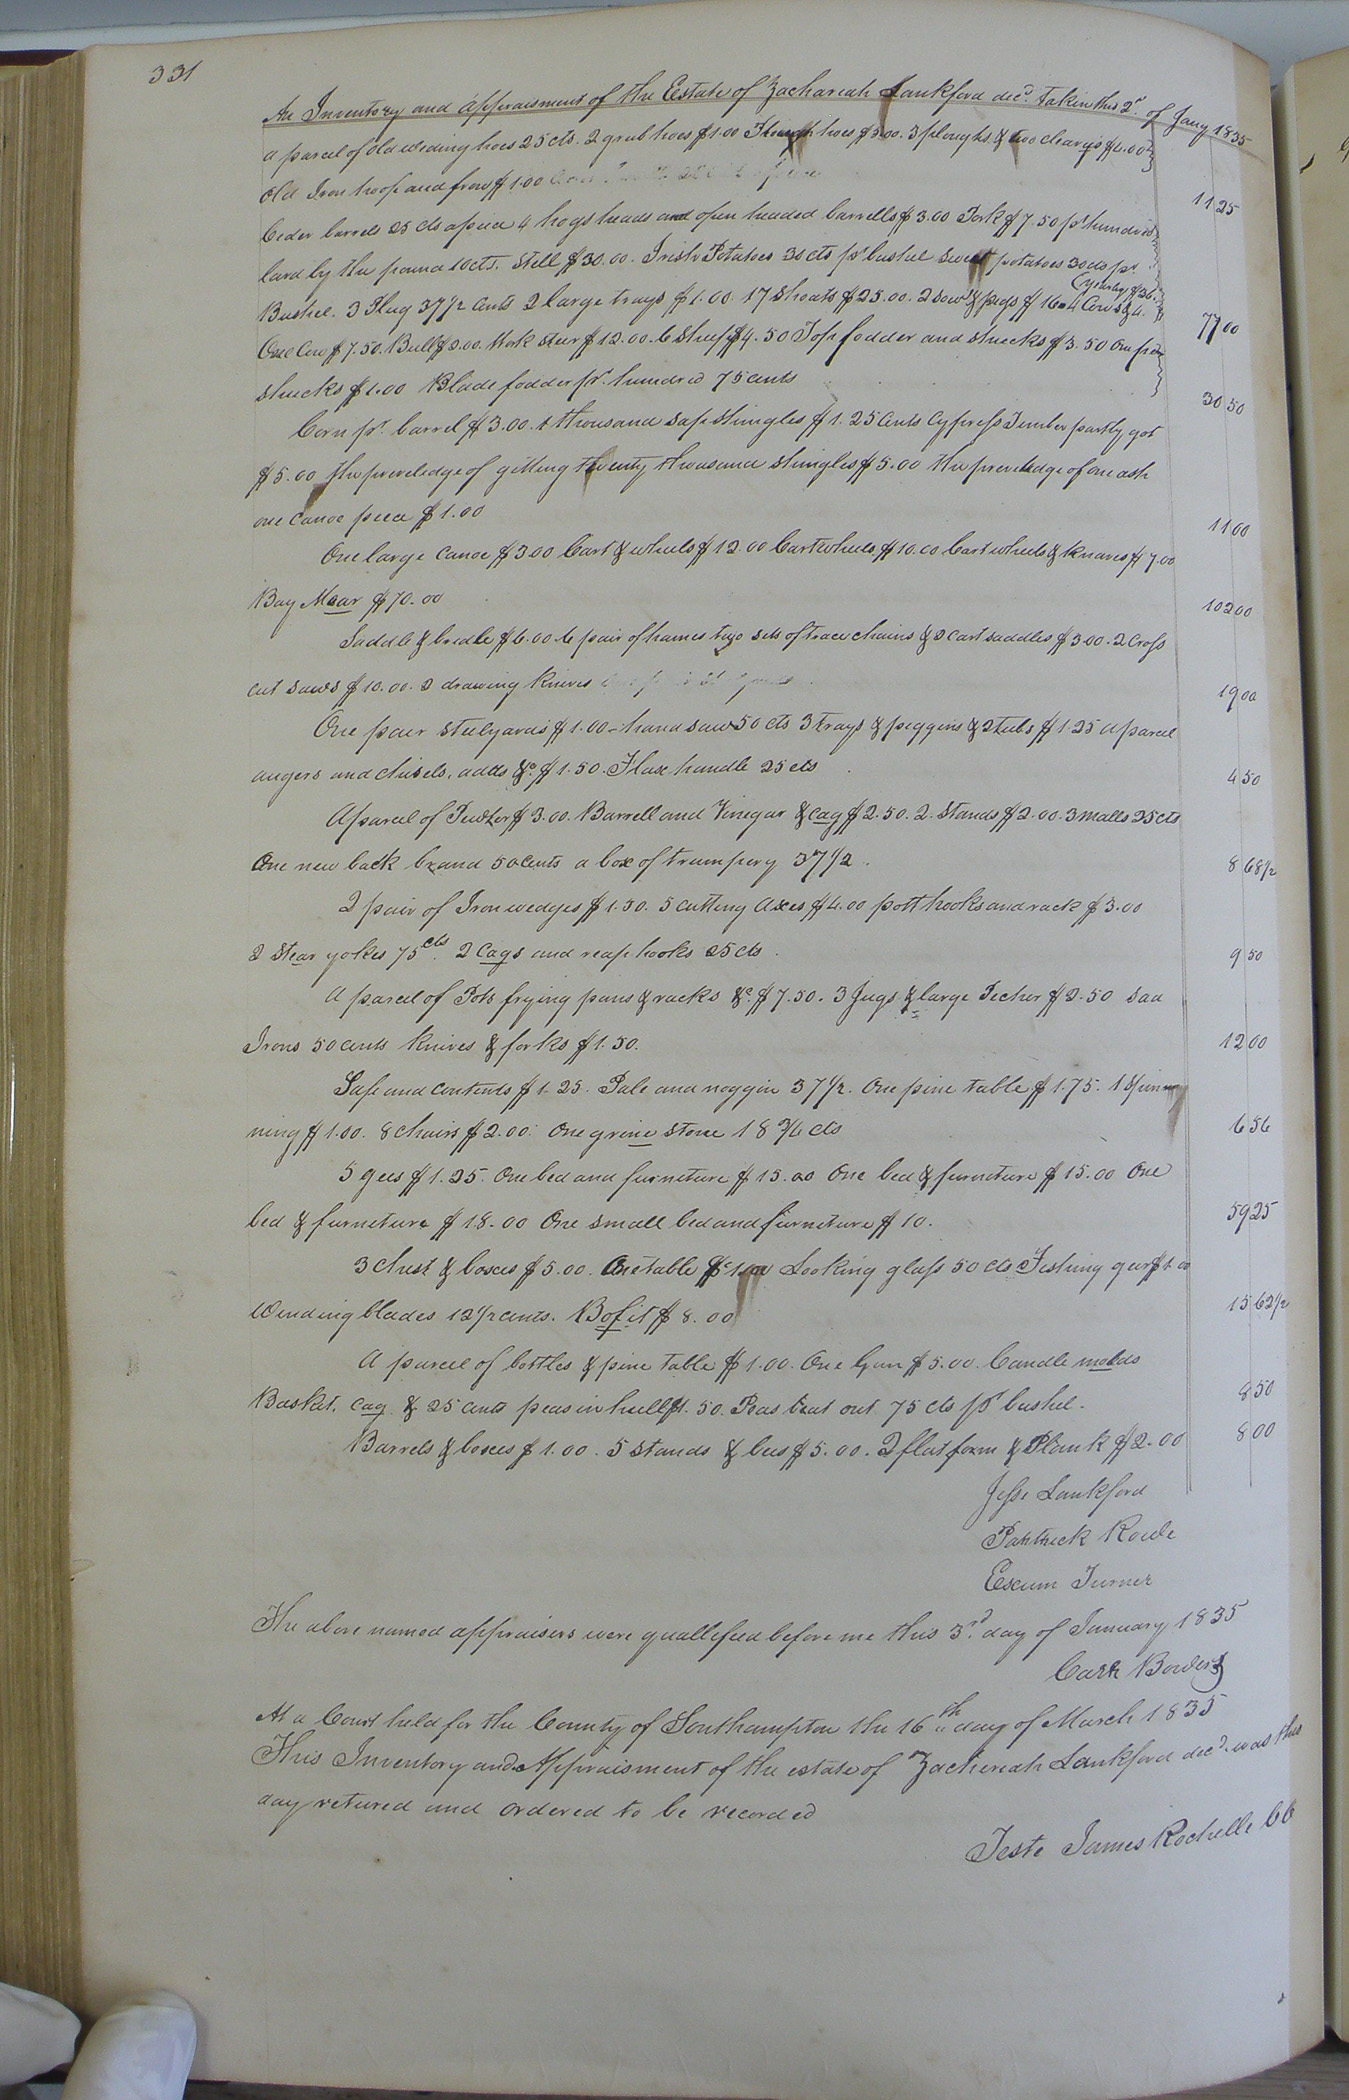 331
An Inventory and appraisment of the Estate of Zachariah Lankford decd. taken this 2d. of Jany 1835
a parcel of old weding hoes 25 cts. 2 grub hoes $1.00 hoes $3.00. 3 ploughs & two cleavys $6.00
old Iron hoop and frow $1.00
11 25
Ceder barrels 25 cts apiece 4 hogsheads and open headed barrells $3.00 Pork $7.50 pr hundred
lard by the pound 10 cts. Still $30.00. Irish Potatoes 30 cts pr bushel sweet potatoes 30 cts pr
Bushel. 3 Plug 37 1/2 cents 2 large trays $1.00. 17 Shoats $25.00. 2 sows & pigs $16 4 Cows & 4 yearlings $26.
77 00
One Cow $7.50. Bull $2.00. Work steer $12.00. 6 Sheep $4.50 Top fodder and shucks $3.50 One pen
shucks $1.00 Blade fodder pr. hundred 75 cents
30 50
Corn pr. barrel $3.00. 1 thousand sap shingles $1.25 Cents Cypress Timber partly got
$5.00 the preveledge of gitting twenty thousand shingles $5.00 the preveledge of one ash
one Canoe peice $1.00
11 00
One large Canoe $3.00 Cart & wheels $12.00 Cart wheels $10.00 Cart wheels & $7.00
Bay Mear $70.00
102 00
Saddle & bridle $6.00. 6 pair of hames two sets of trace chains & 2 Cart saddles $3.00. 2 Cross
cut saws $10.00. 2 drawing knives
19 00
One pair steelyards $1.00 - hand saw 50 cts 3 trays & piggins & 2 tubs $1.25 a parcel
augers and chisels, adds &c. $1.50. Flax handle 25 cts
4 50
A parcel of Pewter $3.00. Barrell and Vinegar & cag $2.50. 2 Stands $2.00. 3 malls 25 cts
One new back band 50 cents a box of trumpery 37 1/2.
8 68 1/2
2 pair of Iron wedges $1.50. 5 cutting Axes $4.00 pott hooks and rack $3.00
2 Stear yokes 75 cts. 2 Cags and reap hooks 25 cts.
9 50
A parcel of Pots frying pans & racks &c. $7.50. 3 Jugs & large Pecher $2.50 Sad
Irons 50 cents knives & forks $1.50.
12 00
Safe and contents $1.25. Pale and noggin 37 1/2. One pine table $1.75. 1 Spinn
ning $1.00. 8 chairs $2.00. One grine stone 18 3/4 cts
6 56
5 gees $1.25. One bed and furneture $15.00 One bed & furneture $15.00 One
bed & furneture $18.00 One small bed and furneture $10.
59 25
3 Chest & boxes $5.00. One table $1.00 Looking glass 50 cts Fishing gear $1.00
Winding blades 12 1/2 cents. Bofit $8.00
15 62 1/2
A parcel of bottles & pine table $1.00. One Gun $5.00. Candle molds
Basket, cag & 25 cents peas in hull $1.50. Peas beat out 75 cts pr bushel.
8 50
Barrels & boxes $1.00. 5 stands & bees $5.00. 2 flat form & Plank $2.00
8 00
Jesse Lankford
Pattrick Rowe
Exum Turner
The above named appraisers were quallefied before me this 3rd. day of January 1835
Carr Bowers
At a Court held for the County of Southampton the 16th day of March 1835
This Inventory and Appraisment of the estate of Zachereah Lankford decd. was this
day retured and ordered to be recorded
Teste James Rochelle CC